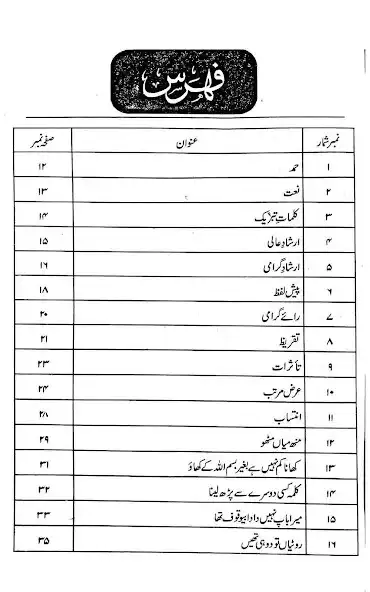 فہرس
نمبر شمار عنوان صفحہ نمبر
۱ حمد ۱۲
۲ نعت ۱۳
۳ کلمات تبریک ۱۴
۴ ارشاد عالی ۱۵
۵ ارشاد گرامی ۱۶
۶ پیش لفظ ۱۸
۷ رائے گرامی ۲۰
۸ تقریظ ۲۱
۹ تأثرات ۲۳
۱۰ عرض مرتب ۲۴
۱۱ انتساب ۲۸
۱۲ منھ میاں مٹھو ۲۹
۱۳ کھانا کم نہیں ہے بغیر بسم اللہ کے کھاؤ ۳۱
۱۴ کلمہ کسی دوسرے سے پڑھ لینا ۳۲
۱۵ میرا باپ نہیں دادا بیوقوف تھا ۳۳
۱۶ روٹیاں تو دو ہی تھیں ۳۵